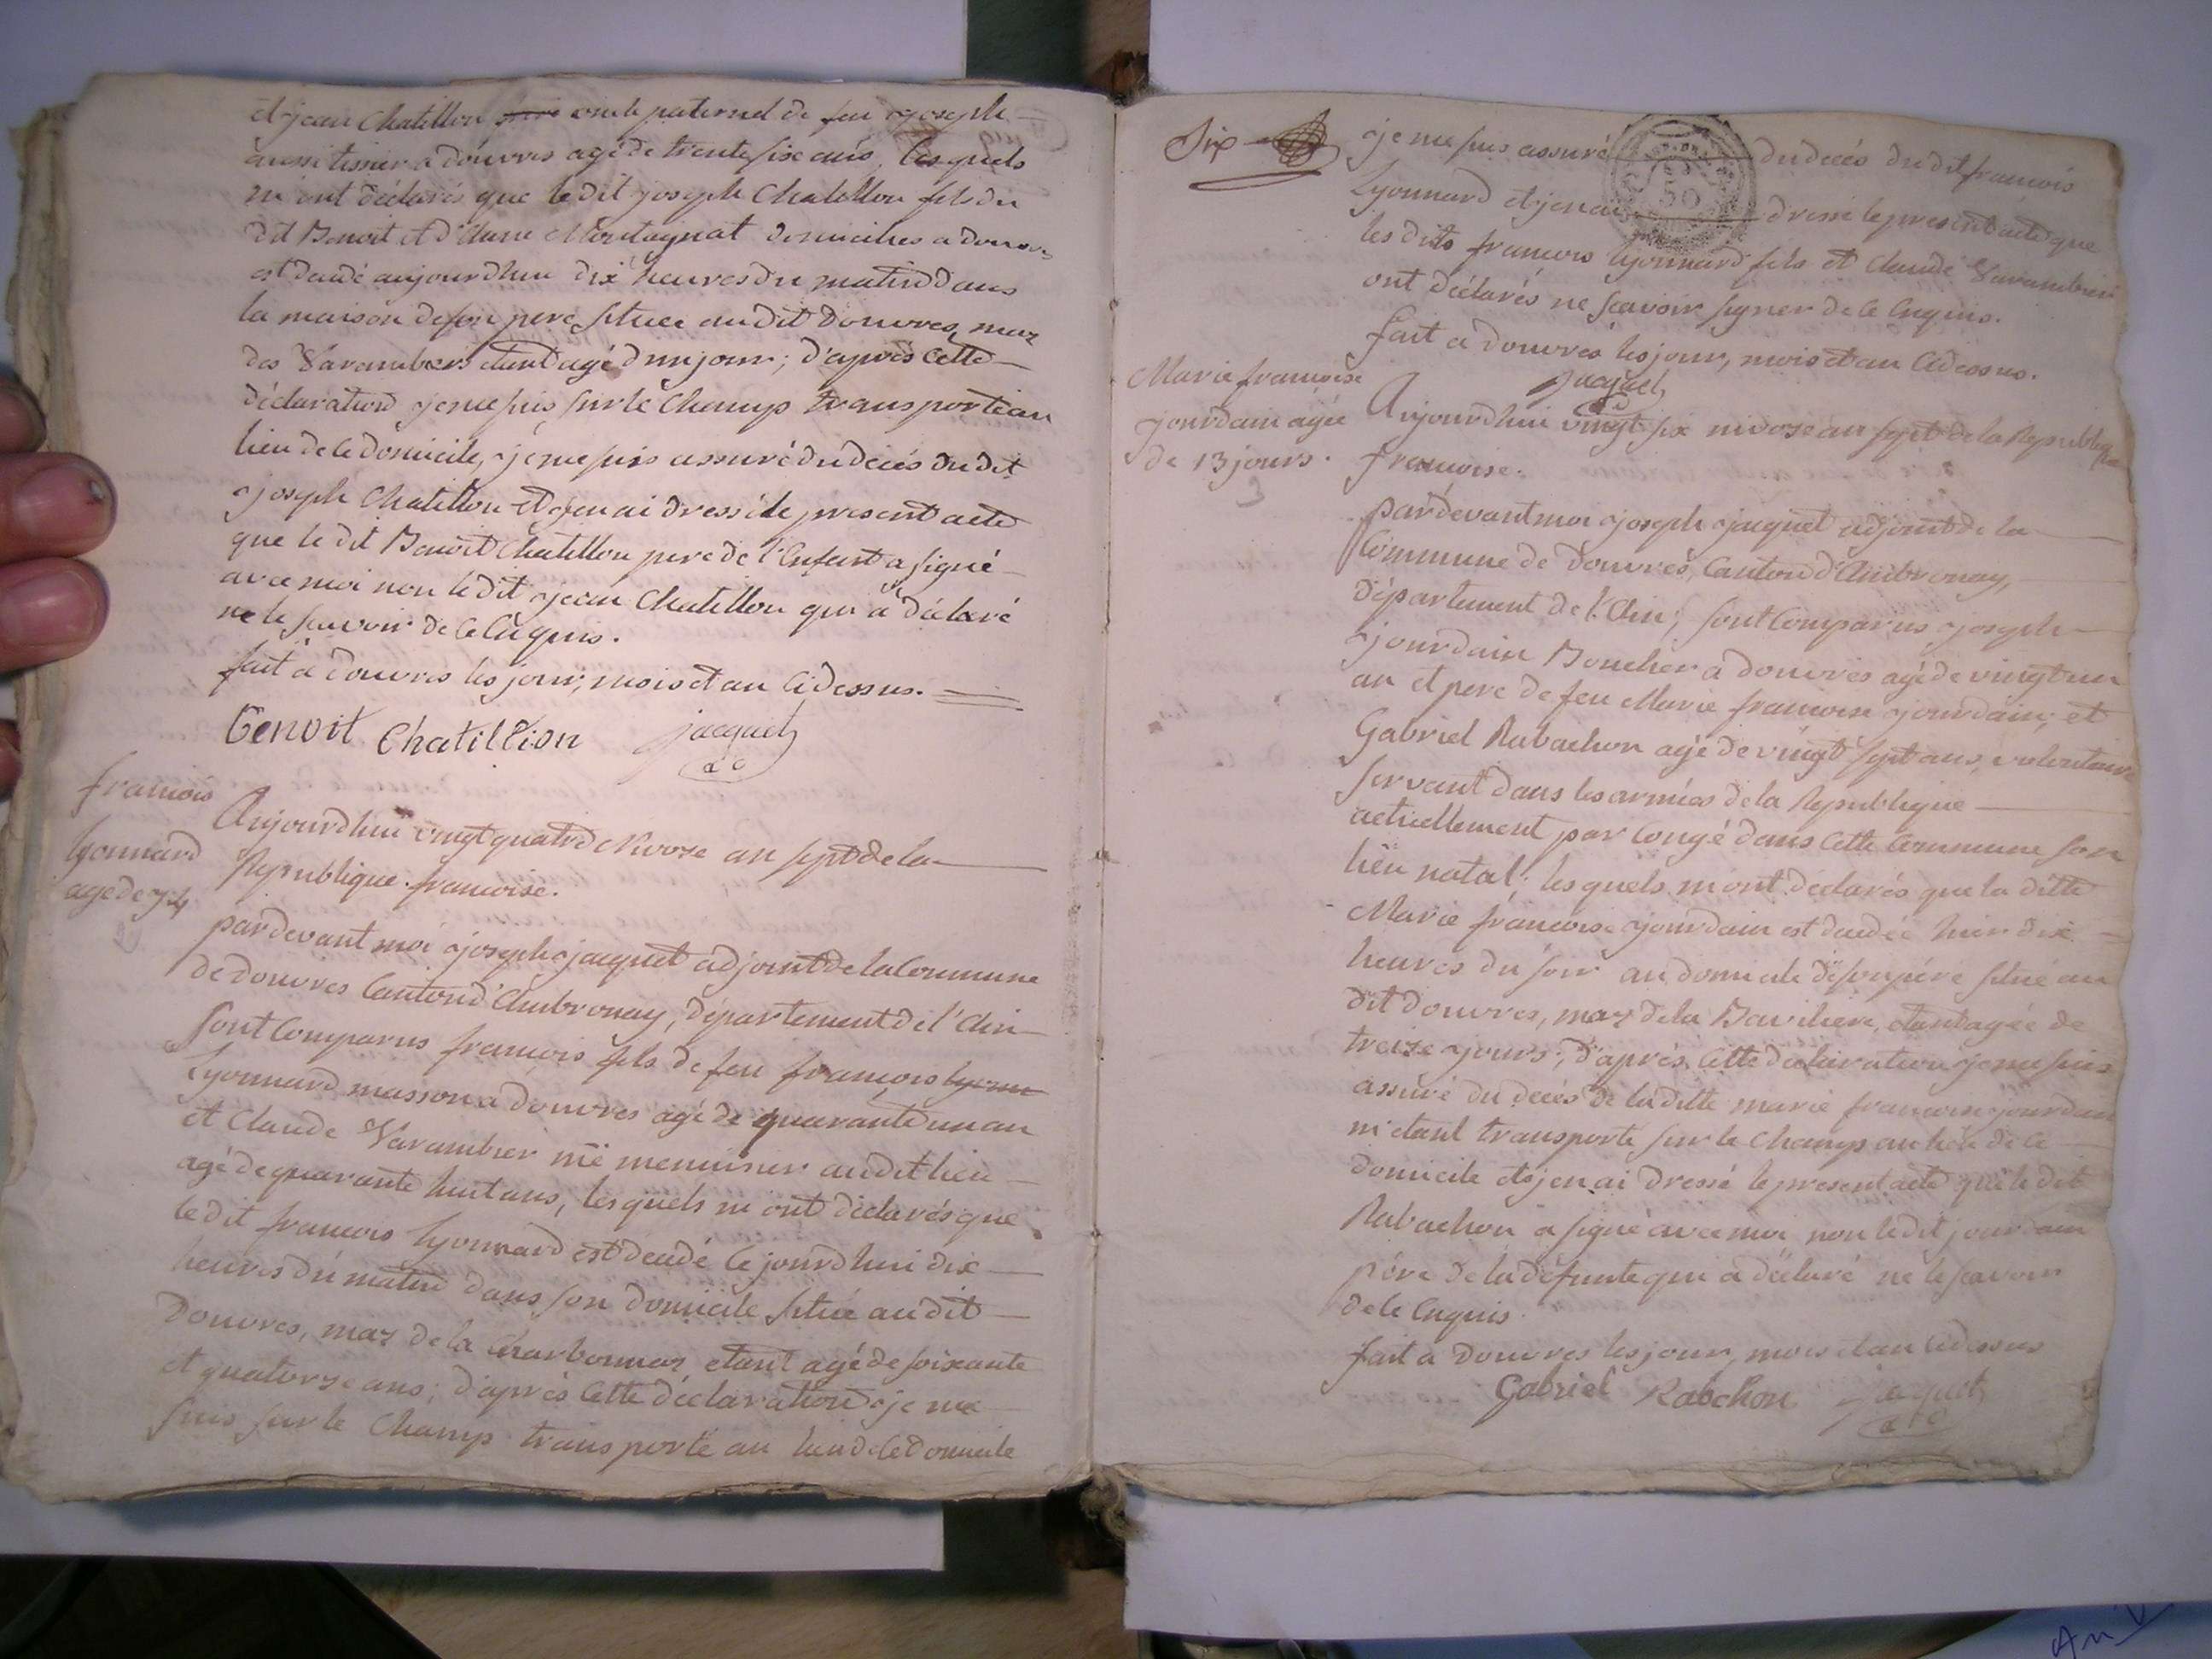 et jean Chatillon oncle paternel de feu joseph
aussi tissier a douvres agé de trente six ans, lesquels
m'ont déclarés que le dit joseph Chatillon fils du
dit Benoit et d'Anne Montagnat domicilies a douvres
est decédé aujourdhui dix heures du matin dans
la maison de son pere située au dit Douvres, maz
des Varambiers etant agé d'un jour; d'après cette
déclaration je me suis sur le champ transporté au
lieu de ce domicile, je me suis assuré du decés du dit
joseph Chatillon et j'en ai dressé le present acte
que le dit Benoit Chatillon pere de l'Enfant a signé
avec moi non le dit jean Chatillon qui a déclaré
ne le scavoir de ce Enquis.
fait a Douvres les jour, mois et an Cidessus.
Benoit Chatillion jacquet
francois
lyonnard
agé de 74
Aujourdhui vingt quatre Nivoze an sept de la
Republique francoise.
pardevant moi joseph jacquet adjoint de la Commune
de douvres Canton d'Ambronay, département de l'Ain
sont Comparus françois fils de feu françois lyonn
Lyonnard masson a douvres agé de quarante un an
et Claude Varambier me menuisier au dit lieu
agé de quarante huit ans, lesquels m'ont déclarés que
le dit francois Lyonnard est decédé ce jourdhui dix
heures du matin dans son domicile situé au dit
Douvres, maz de la Charbonnaz etant agé de soixante
et quatorze ans; d'après cette déclaration je me
suis sur le Champ transporté au lieu de ce Domicile
Six
je me suis assuré du decés du dit francois
Lyonnard et j'en ai dressé le present acte que
les dits francois lyonnard fils et Claude Varambier
ont déclarés ne scavoir signer de ce Enquis.
fait a douvres les jour, mois et an Cidessus.
jacquet
Marie francoise
jourdain agée
de 13 jours.
3
Aujourdhui vingt six nivoze an sept de la Republique
francoise.
pardevant moi joseph jacquet adjoint de la
Commune de Douvres, Canton d'Ambronay,
département de l'Ain; sont Comparus joseph
jourdain Boucher a Douvres agé de vingt un
an et pere de feu Marie francoise jourdain; et
Gabriel Rabachon agé de vingt sept ans, volontaire
servant dans les armées de la Republique
actuellement par Congé dans cette Commune son
lieu natal; lesquels m'ont déclarés que la ditte
Marie francoise jourdain est decedée hier dix
heures du soir au domicile de son pére situé au
dit Douvres, maz de la etant agée de
treize jours; d'aprés cette déclaration je me suis
assuré du decés de la ditte marie francoise jourdain
m'etant transporté sur le Champ au lieu de ce
domicile et j'en ai dressé le present acte que le dit
Rabachon a signé avec moi non le dit jourdain
pére de la defunte qui a déclaré ne le scavoir
de ce Enquis.
fait a Douvres les jour, mois et an Cidessus
Gabriel Rabchon jacquet